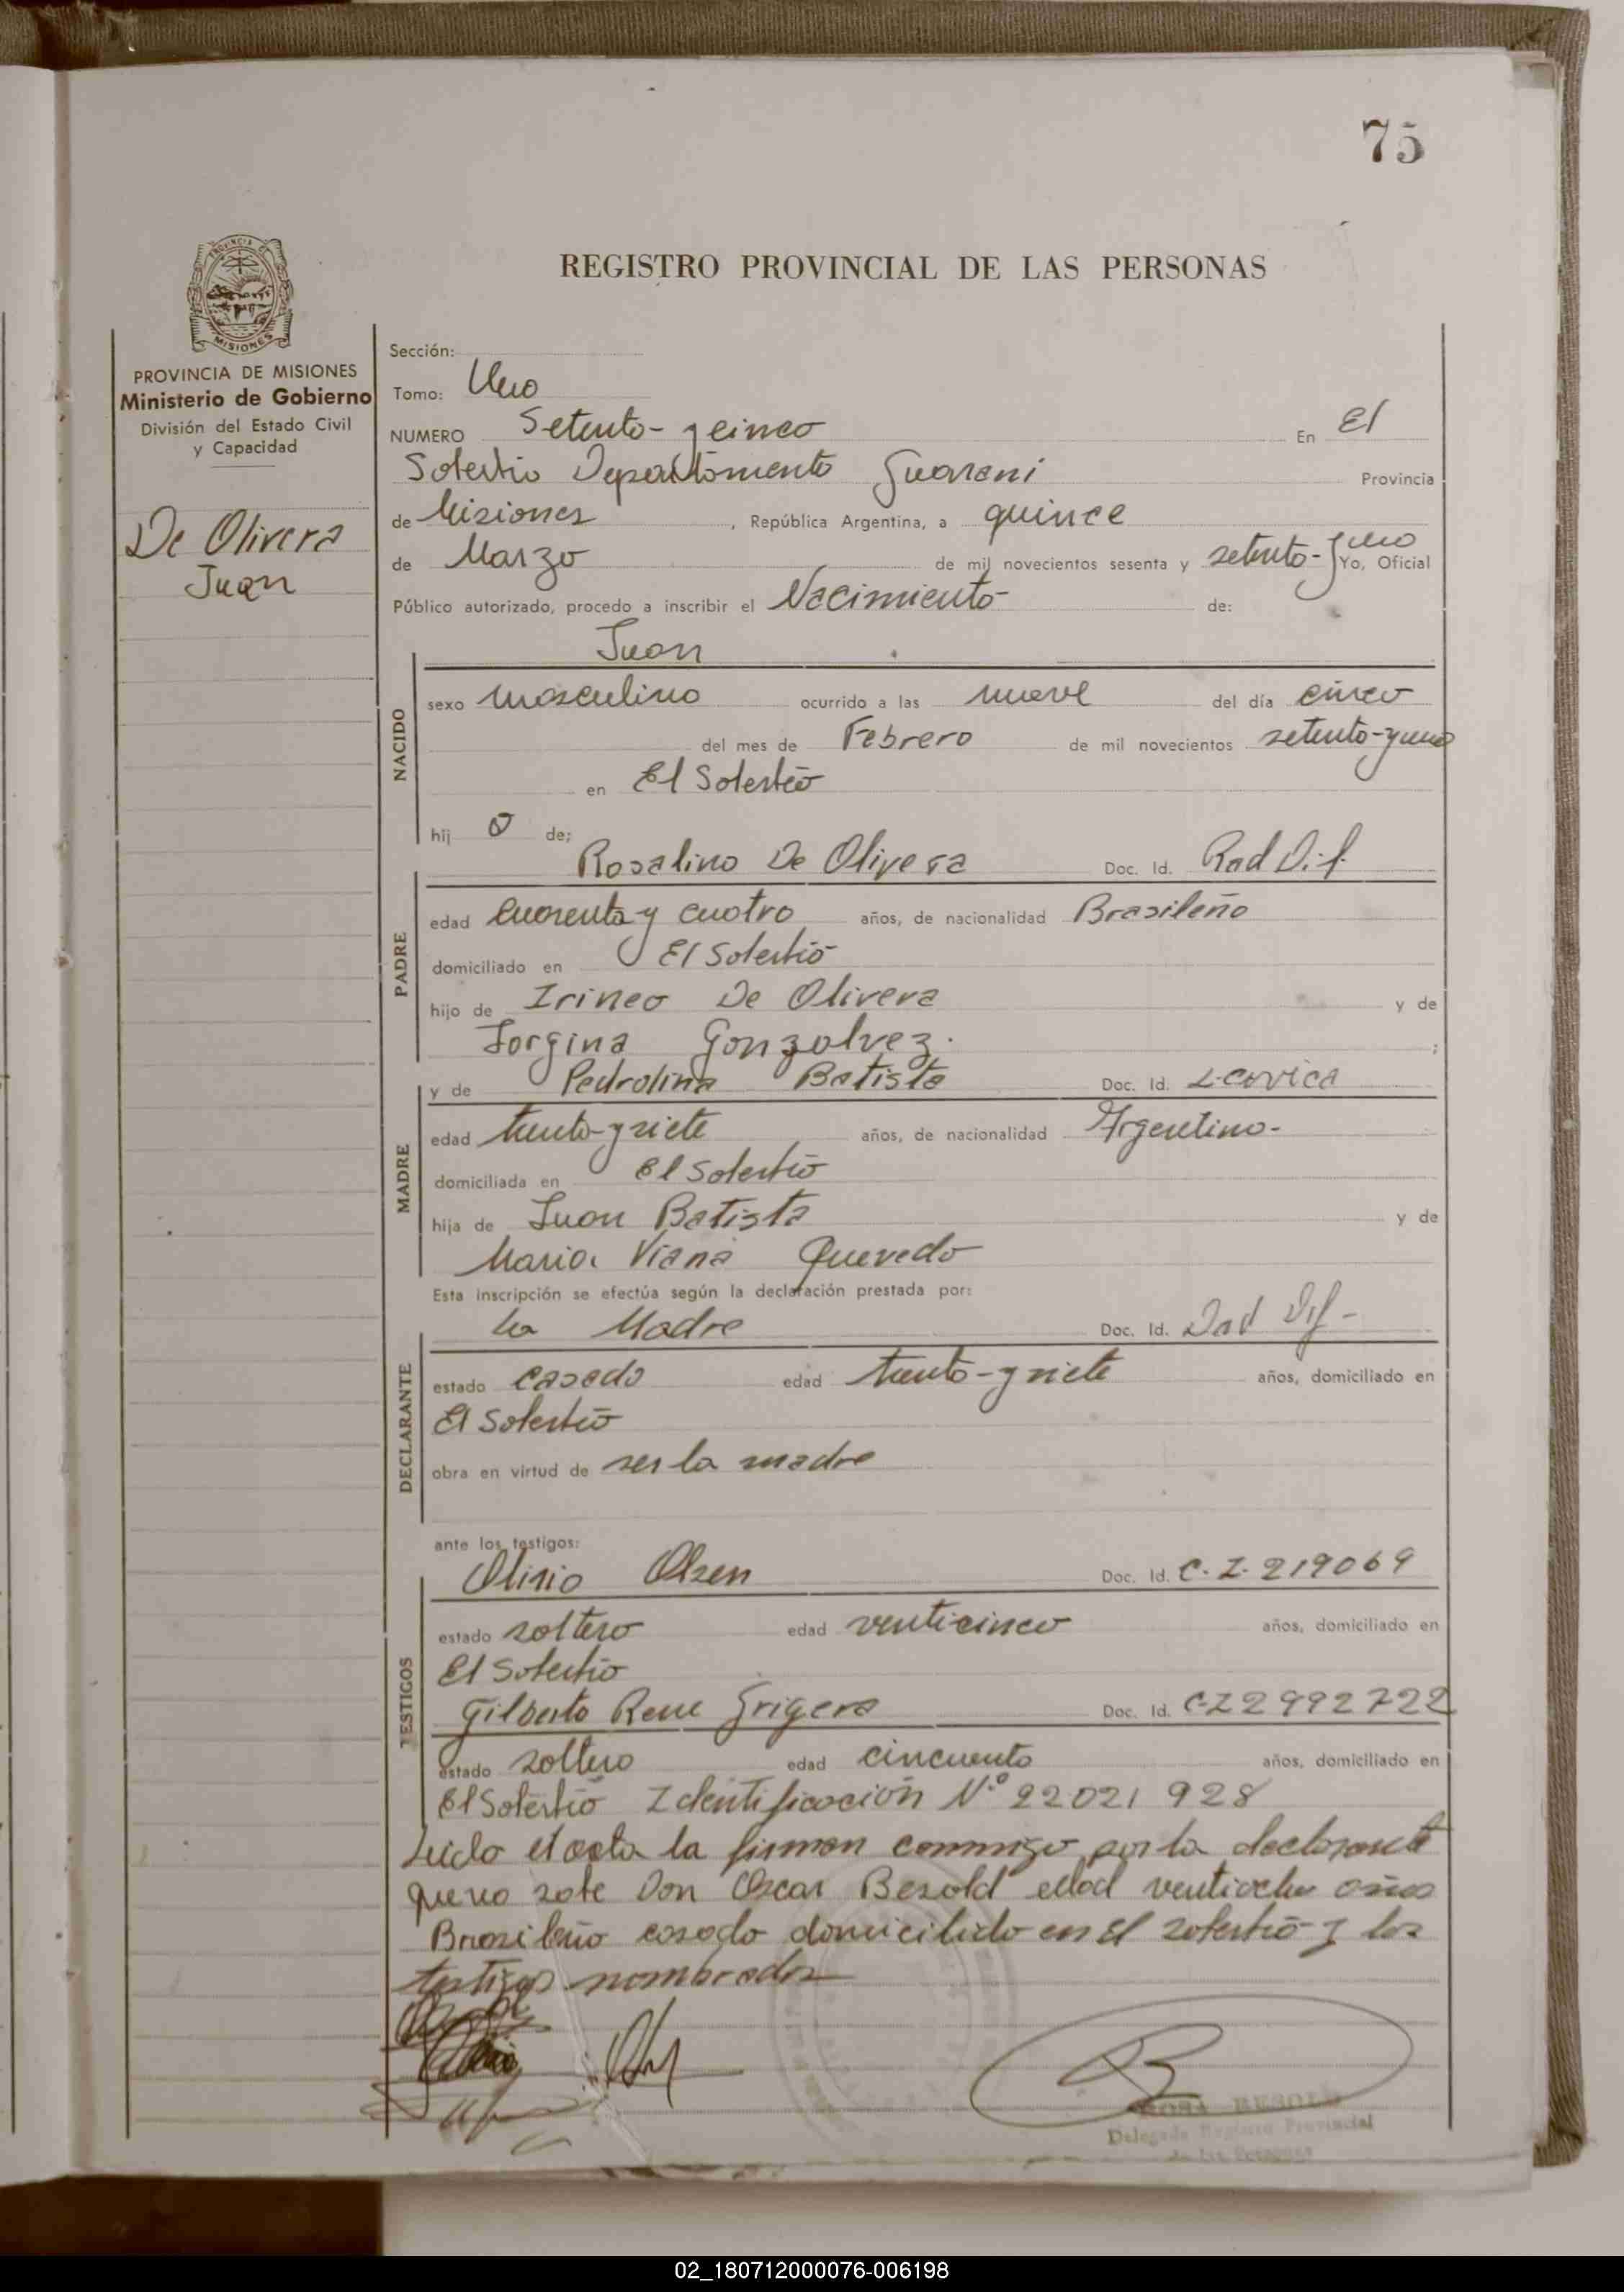 75
PROVINCIA DE
MISIONES
REGISTRO PROVINCIAL DE LAS PERSONAS
PROVINCIA DE MISIONES
Ministerio de Gobierno
División del Estado Civil
y Capacidad
De Olivera
Juan
Sección:
Tomo: Uno
NUMERO Setenta - y cinco En El
Soberbio Departamento Guarani Provincia
de Misiones, República Argentina, a quince
de Marzo de mil novecientos sesenta y setenta - y uno Yo, Oficial
Público autorizado, procedo a inscribir el Nacimiento de:
Juan
NACIDO
sexo masculino ocurrido a las nueve del día cinco
del mes de Febrero de mil novecientos setenta-y uno
en El Soberbio
hij o de;
Rosalino De Olivera Doc. Id.
PADRE
edad cuarenta y cuatro años, de nacionalidad Brasileño
domiciliado en El Soberbio
hijo de Irineo De Olivera y de
Jorgina Gonzalvez.
y de Pedrolina Batista Doc. Id. L. Civica
MADRE
edad treinta-y siete años, de nacionalidad Argentina-
domiciliada en El Soberbio
hija de Juan Batista y de
Maria Viana Quevedo
Esta inscripción se efectúa según la declaración prestada por:
La Madre Doc. Id.
DECLARANTE
estado casada edad treinta-y siete años, domiciliado en
El Soberbio
obra en virtud de ser la madre
ante los testigos:
Olisio Olsen Doc. Id. C. I. 219069
TESTIGOS
estado soltero edad venticinco años, domiciliado en
El Soberbio
Gilberto Rene Grigera Doc. Id. C-I 2992722
estado soltero edad cincuenta años, domiciliado en
El Soberbio Identificación N.º 22021 928
Leido el acta la firman conmigo por la declarante
que no sabe Don Oscar Besold edad ventiocho años
Brasileño casado domicilido en El soberbio y los
testigos nombrados
ROSA BESOLD
Delegada Registro Provincial
de las Personas
02_180712000076-006198